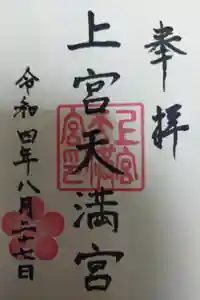 奉拝
上宮天満宮
令和四年八月二十七日